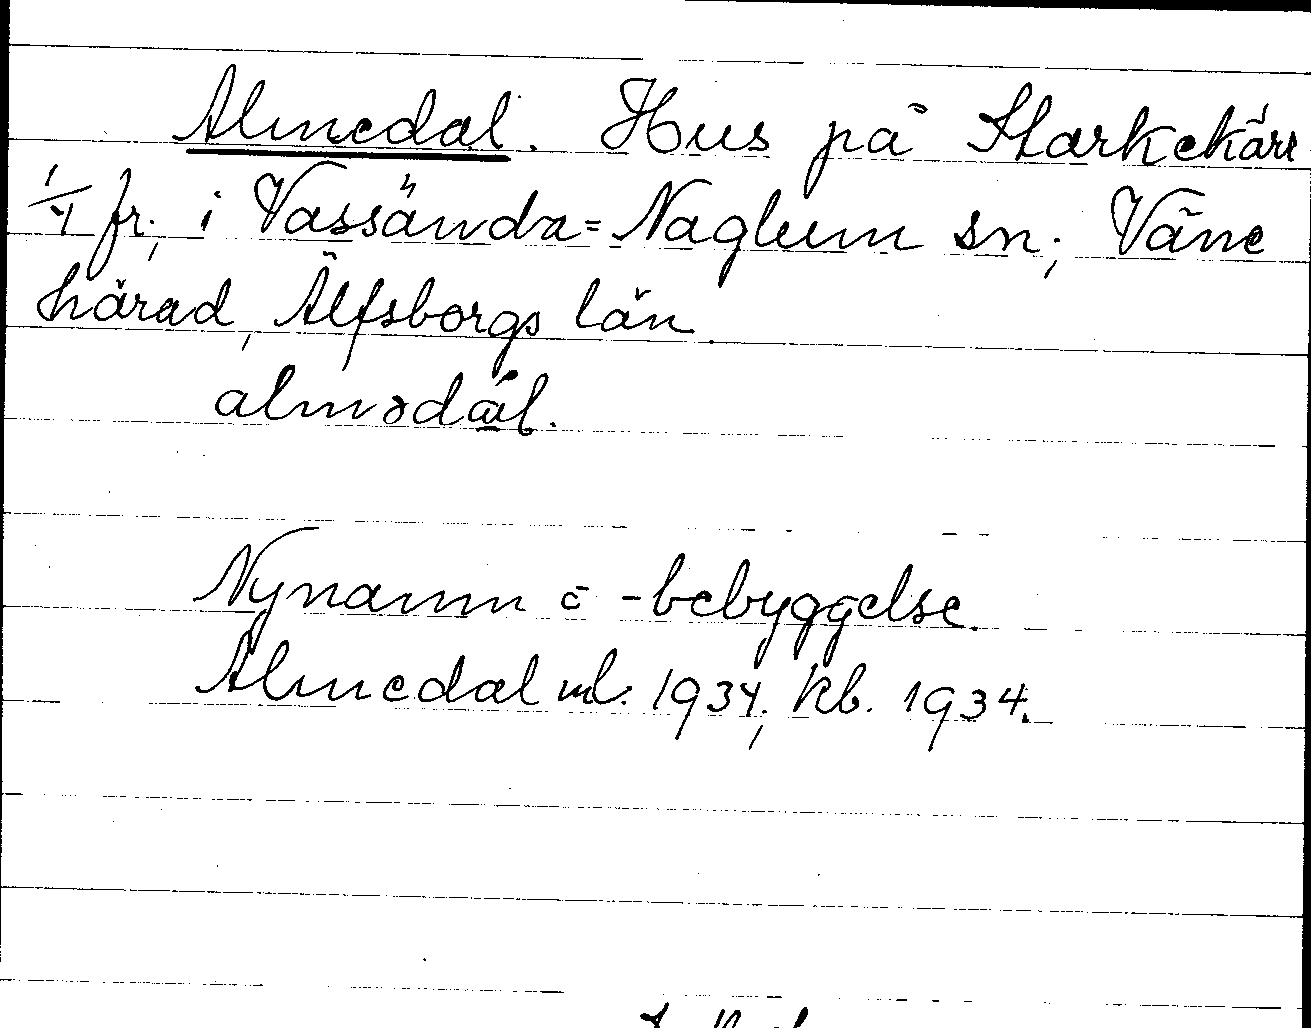 Almedal. Hus på Starkekärr
1/4 fr., i Vassända=Naglum sn; Väne
härad, Älfsborgs län.
alməda̱l.
Nynamn o -bebyggelse.
Almedal ml. 1934; kb. 1934.